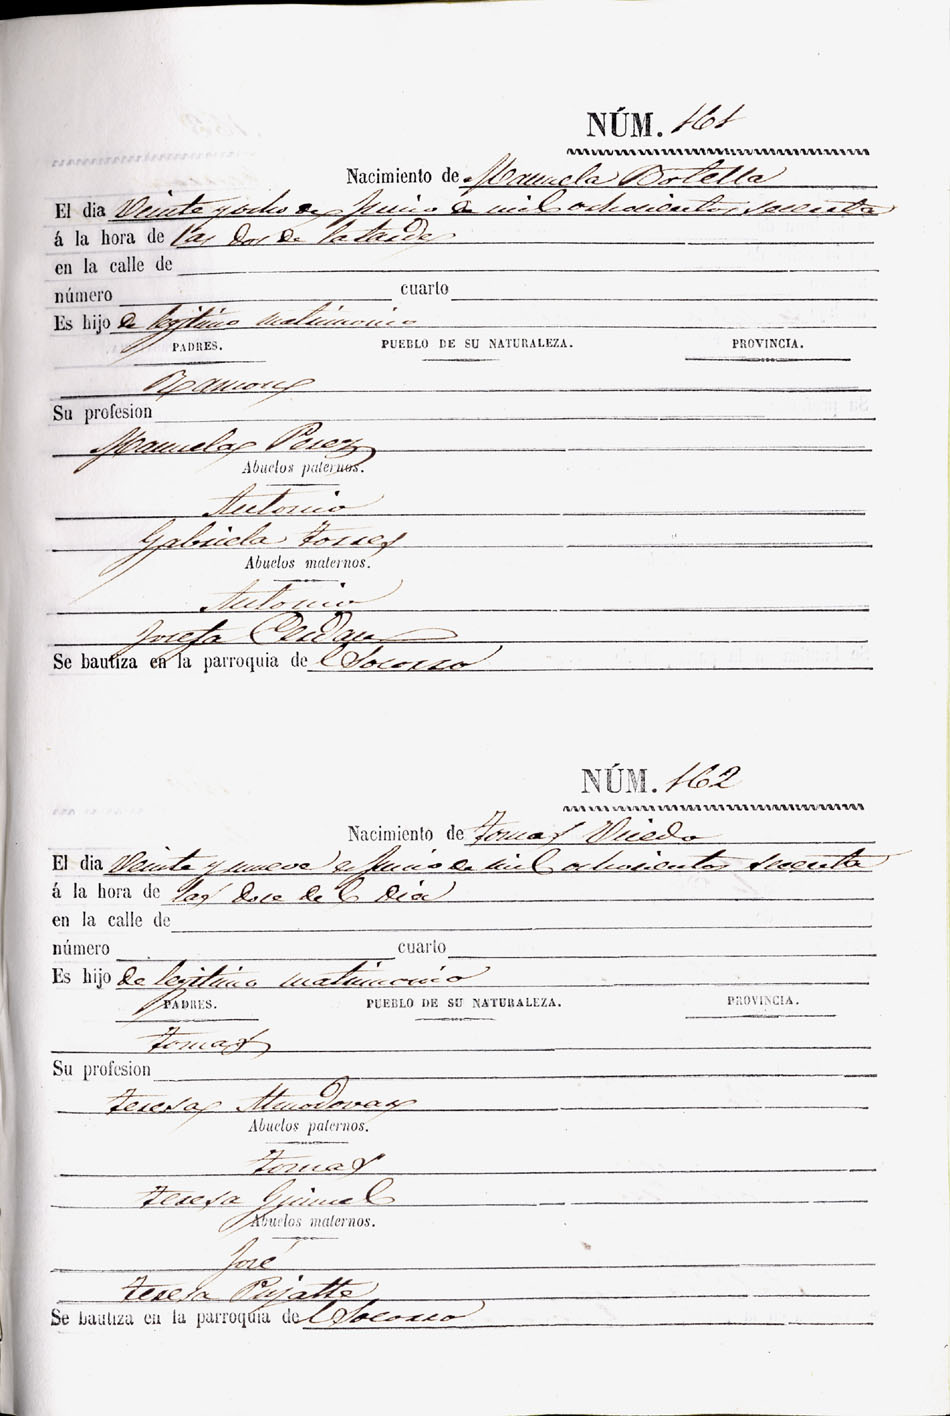 NÚM. 161
Nacimiento de Manuela Botella
El dia Veinte y ocho de Junio de mil ochocientos sesenta
á la hora de las dos de la tarde
en la calle de
número cuarto
Es hijo de legitimo matrimonio
PADRES. PUEBLO DE SU NATURALEZA. PROVINCIA.
Ramon
Su profesion
Manuela Perez
Abuelos paternos.
Antonio
Gabriela Torres
Abuelos maternos.
Antonio
Josefa
Se bautiza en la parroquia del Socorro
NÚM. 162
Nacimiento de Tomas Oviedo
El dia Veinte y nueve de Junio de mil ochocientos sesenta
á la hora de las doce del dia
en la calle de
número cuarto
Es hijo de legitimo matrimonio
PADRES. PUEBLO DE SU NATURALEZA. PROVINCIA.
Tomas
Su profesion
Teresa Almodovar
Abuelos paternos.
Tomas
Teresa
Abuelos maternos.
José
Teresa Pujatte
Se bautiza en la parroquia del Socorro